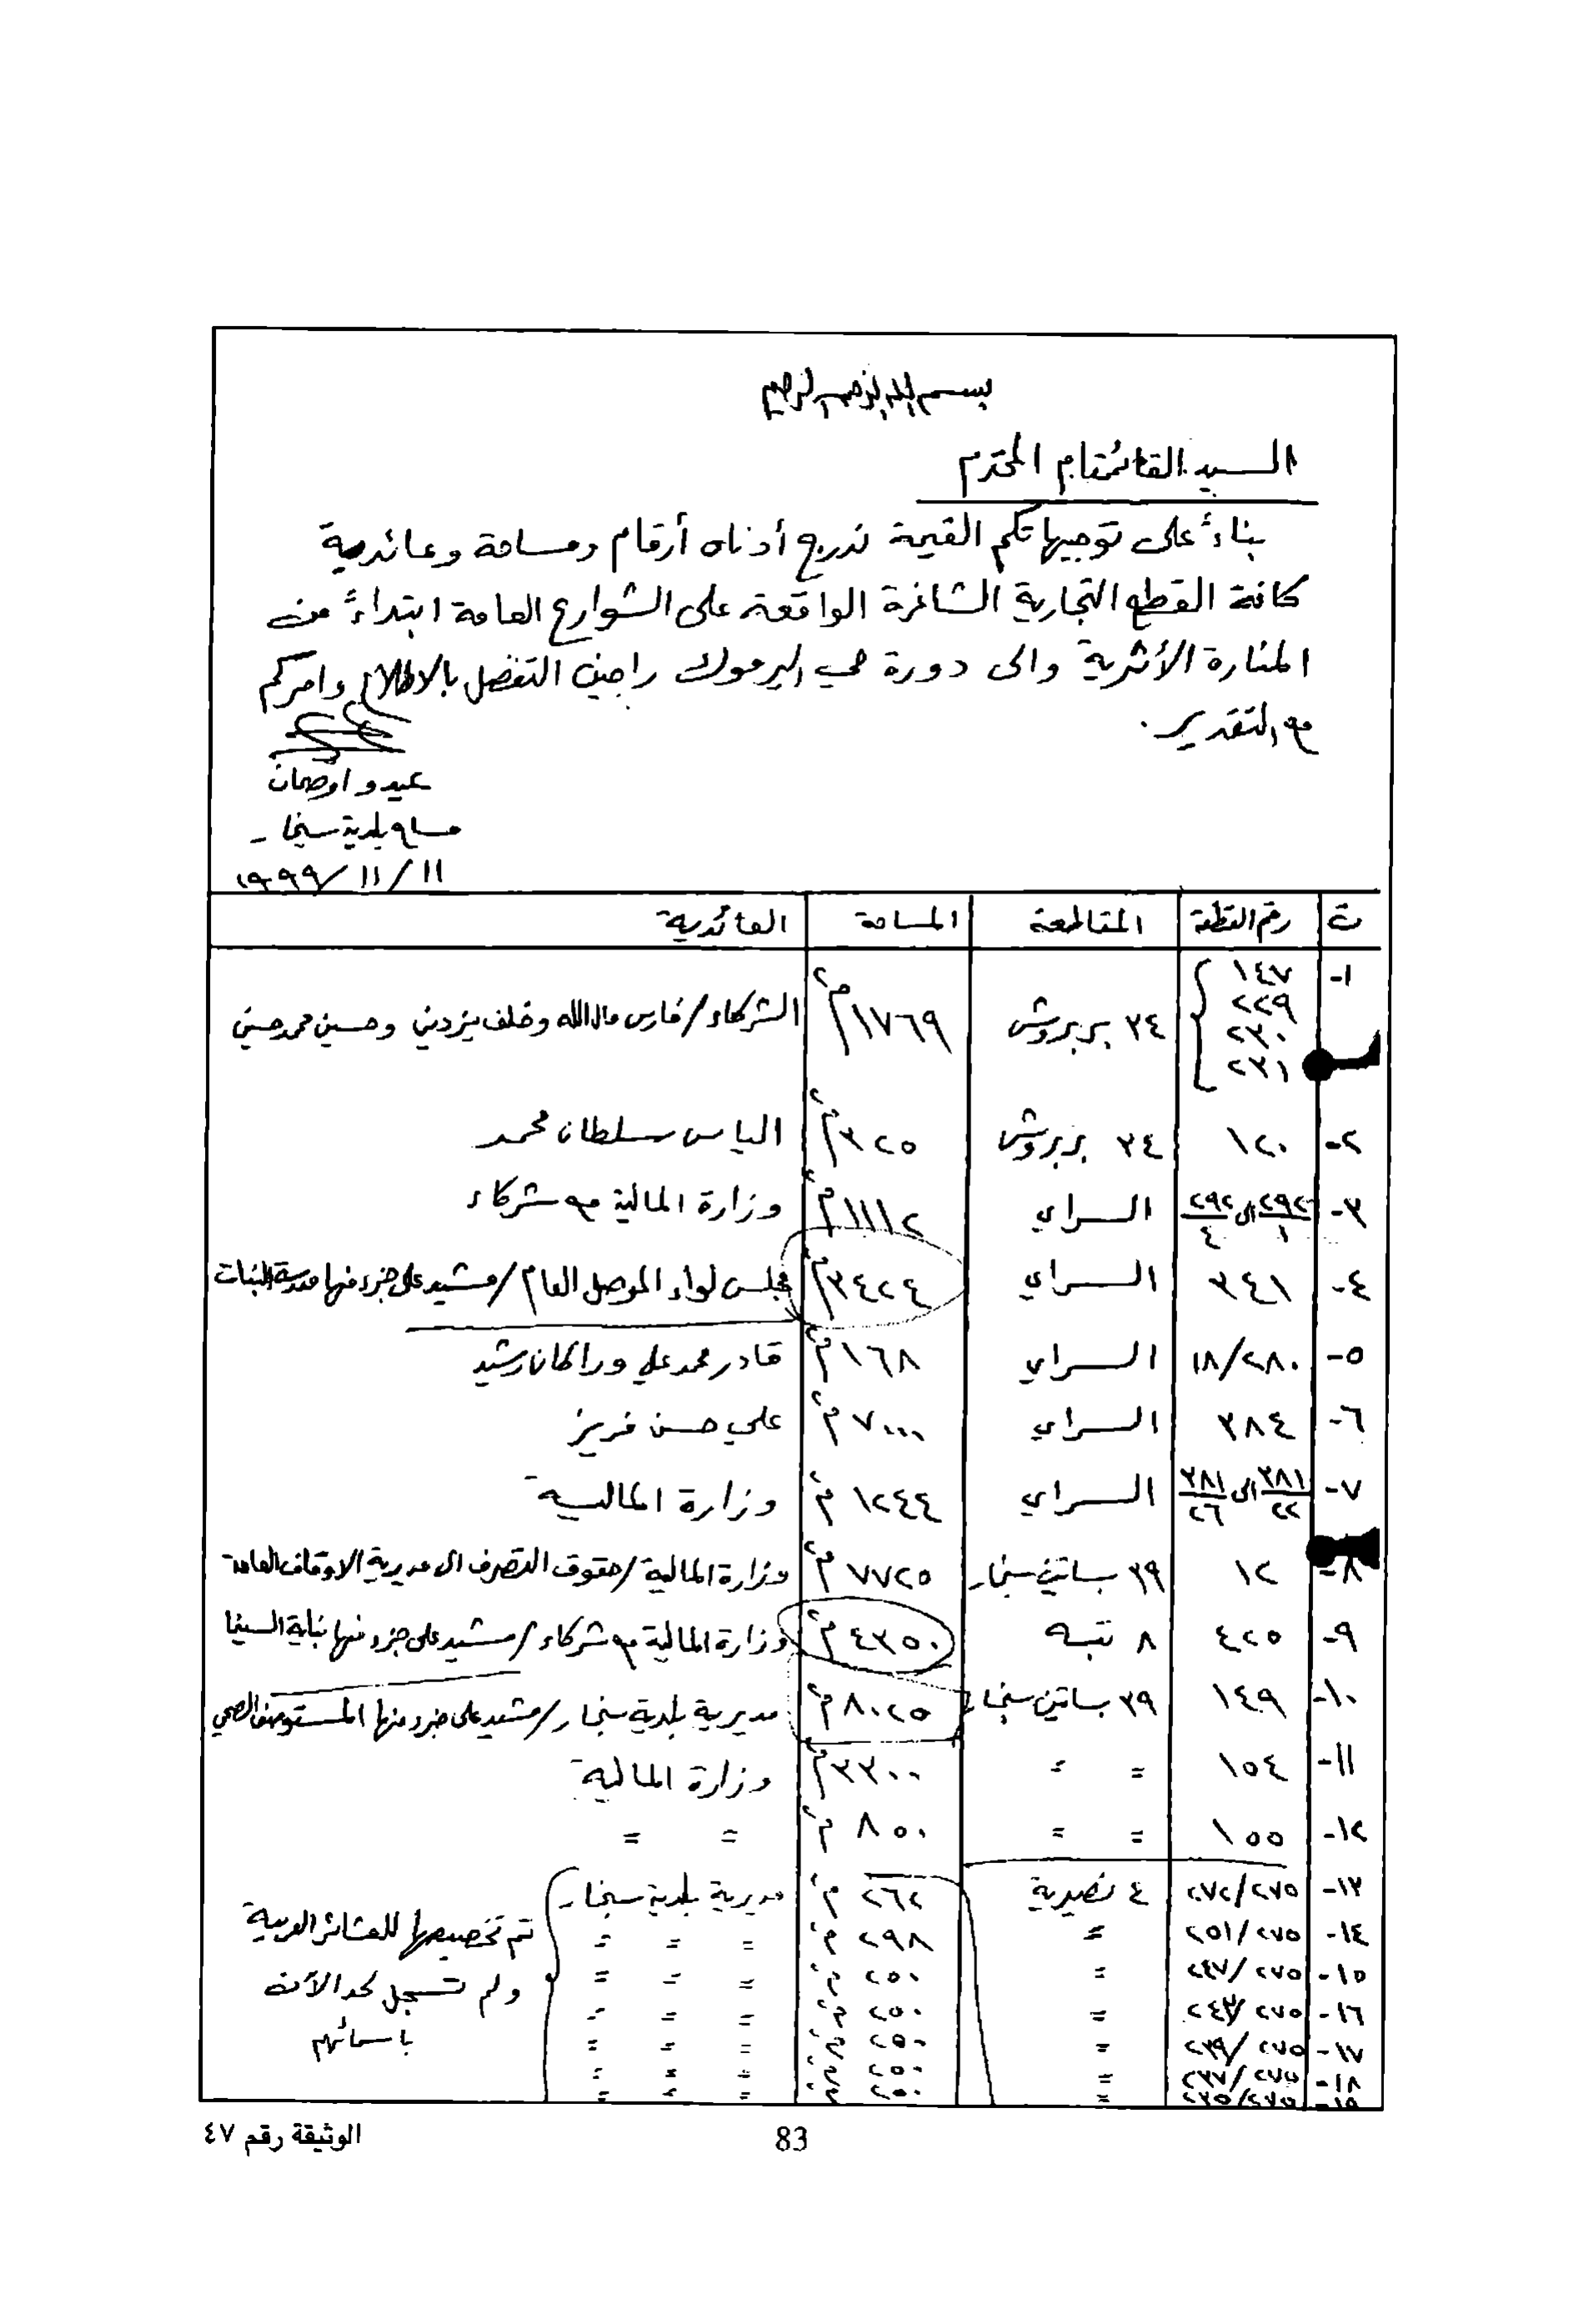 بسم الله الرحمن الرحيم
السيد القائمقام المحترم
بناءً على توجيهاتكم القيمة ندرج أدناه أرقام ومساحة وعائدية
كافة القطع التجارية الشاغرة الواقعة على الشوارع العامة ابتداءً من
المنارة الأثرية والى دورة حي اليرموك راجين التفضل بالاطلاع وامركم
مع التقدير.
عيدو اوصمان
مساح بلدية سنجار
١٩٩٩/١١/١١
ت رقم القطعة المقاطعة المساحة العائدية
١- ١٤٧ ٢٢٩ ٢٣٠ ٢٣١ ٣٤ بربروش ١٧٦٩م٢ الشركاء/فارس مال الله وخلف يزدين وحسين محمد حسين
٢- ١٢٠ ٣٤ بربروش ٣٢٥م٢ الياس سلطان محمد
٣- ٢٩٢/١ الى ٢٩٢/٤ السراي ١١١٢م٢ وزارة المالية مع شركاء
٤- ٣٤١ السراي ٣٤٢٤م٢ مجلس لواء الموصل العام/مشيد على جزء منها مدرسة البنات
٥- ١٨/٢٨٠ السراي ١٦٨م٢ قادر محمد علي وراكان رشيد
٦- ٣٨٤ السراي ٧٠٠٠م٢ علي حسن فريز
٧- ٣٨١/٢٢ الى ٣٨١/٢٦ السراي ١٢٤٤م٢ وزارة المالية
٨- ١٢ ٣٩ بساتين سنجار ٧٧٢٥م٢ وزارة المالية/حقوق التصرف الى مديرية الاوقاف العامة
٩- ٤٢٥ ٨ نتبه ٤٣٥٠م٢ وزارة المالية مع شركاء/مشيد على جزء منها بناية السينما
١٠- ١٤٩ ٣٩ بساتين سنجار ٨٠٢٥م٢ مديرية بلدية سنجار/مشيد على جزء منها المستوصف الصحي
١١- ١٥٤ = = ٣٣٠٠م٢ وزارة المالية
١٢- ١٥٥ = = ٨٥٠م٢ = =
١٣- ٢٧٢/٢٧٥ ٤ نصيرية ٢٦٢م٢ مديرية بلدية سنجار
١٤- ٢٥١/٢٧٥ = ٢٩٨م٢ = = = تم تخصيصها للعشائر العربية
١٥- ٢٤٧/٢٧٥ = ٢٥٠م٢ = = = ولم تسجل لحد الآن
١٦- ٢٤٣/٢٧٥ = ٢٥٠م٢ = = = باسمائهم
١٧- ٢٣٩/٢٧٥ = ٢٥٠م٢ = = =
١٨- ٢٣٧/٢٧٥ = ٢٥٠م٢ = = =
١٩- ٢٣٥/٢٧٥ = ٢٥٠م٢ = = =
83
الوثيقة رقم ٤٧